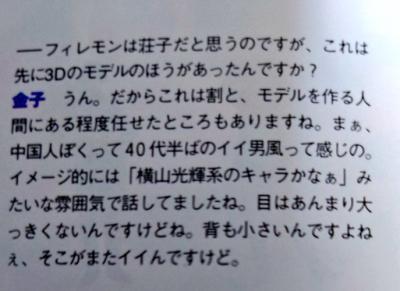 ──フィレモンは荘子だと思うのですが、これは
先に3Dのモデルのほうがあったんですか？
金子　うん。だからこれは割と、モデルを作る人
間にある程度任せたところもありますね。まぁ、
中国人ぽくって40代半ばのイイ男風って感じの。
イメージ的には「横山光輝系のキャラかなぁ」み
たいな雰囲気で話してましたね。目はあんまり大
っきくないんですけどね。背も小さいんですよね
ぇ、そこがまたイイんですけど。